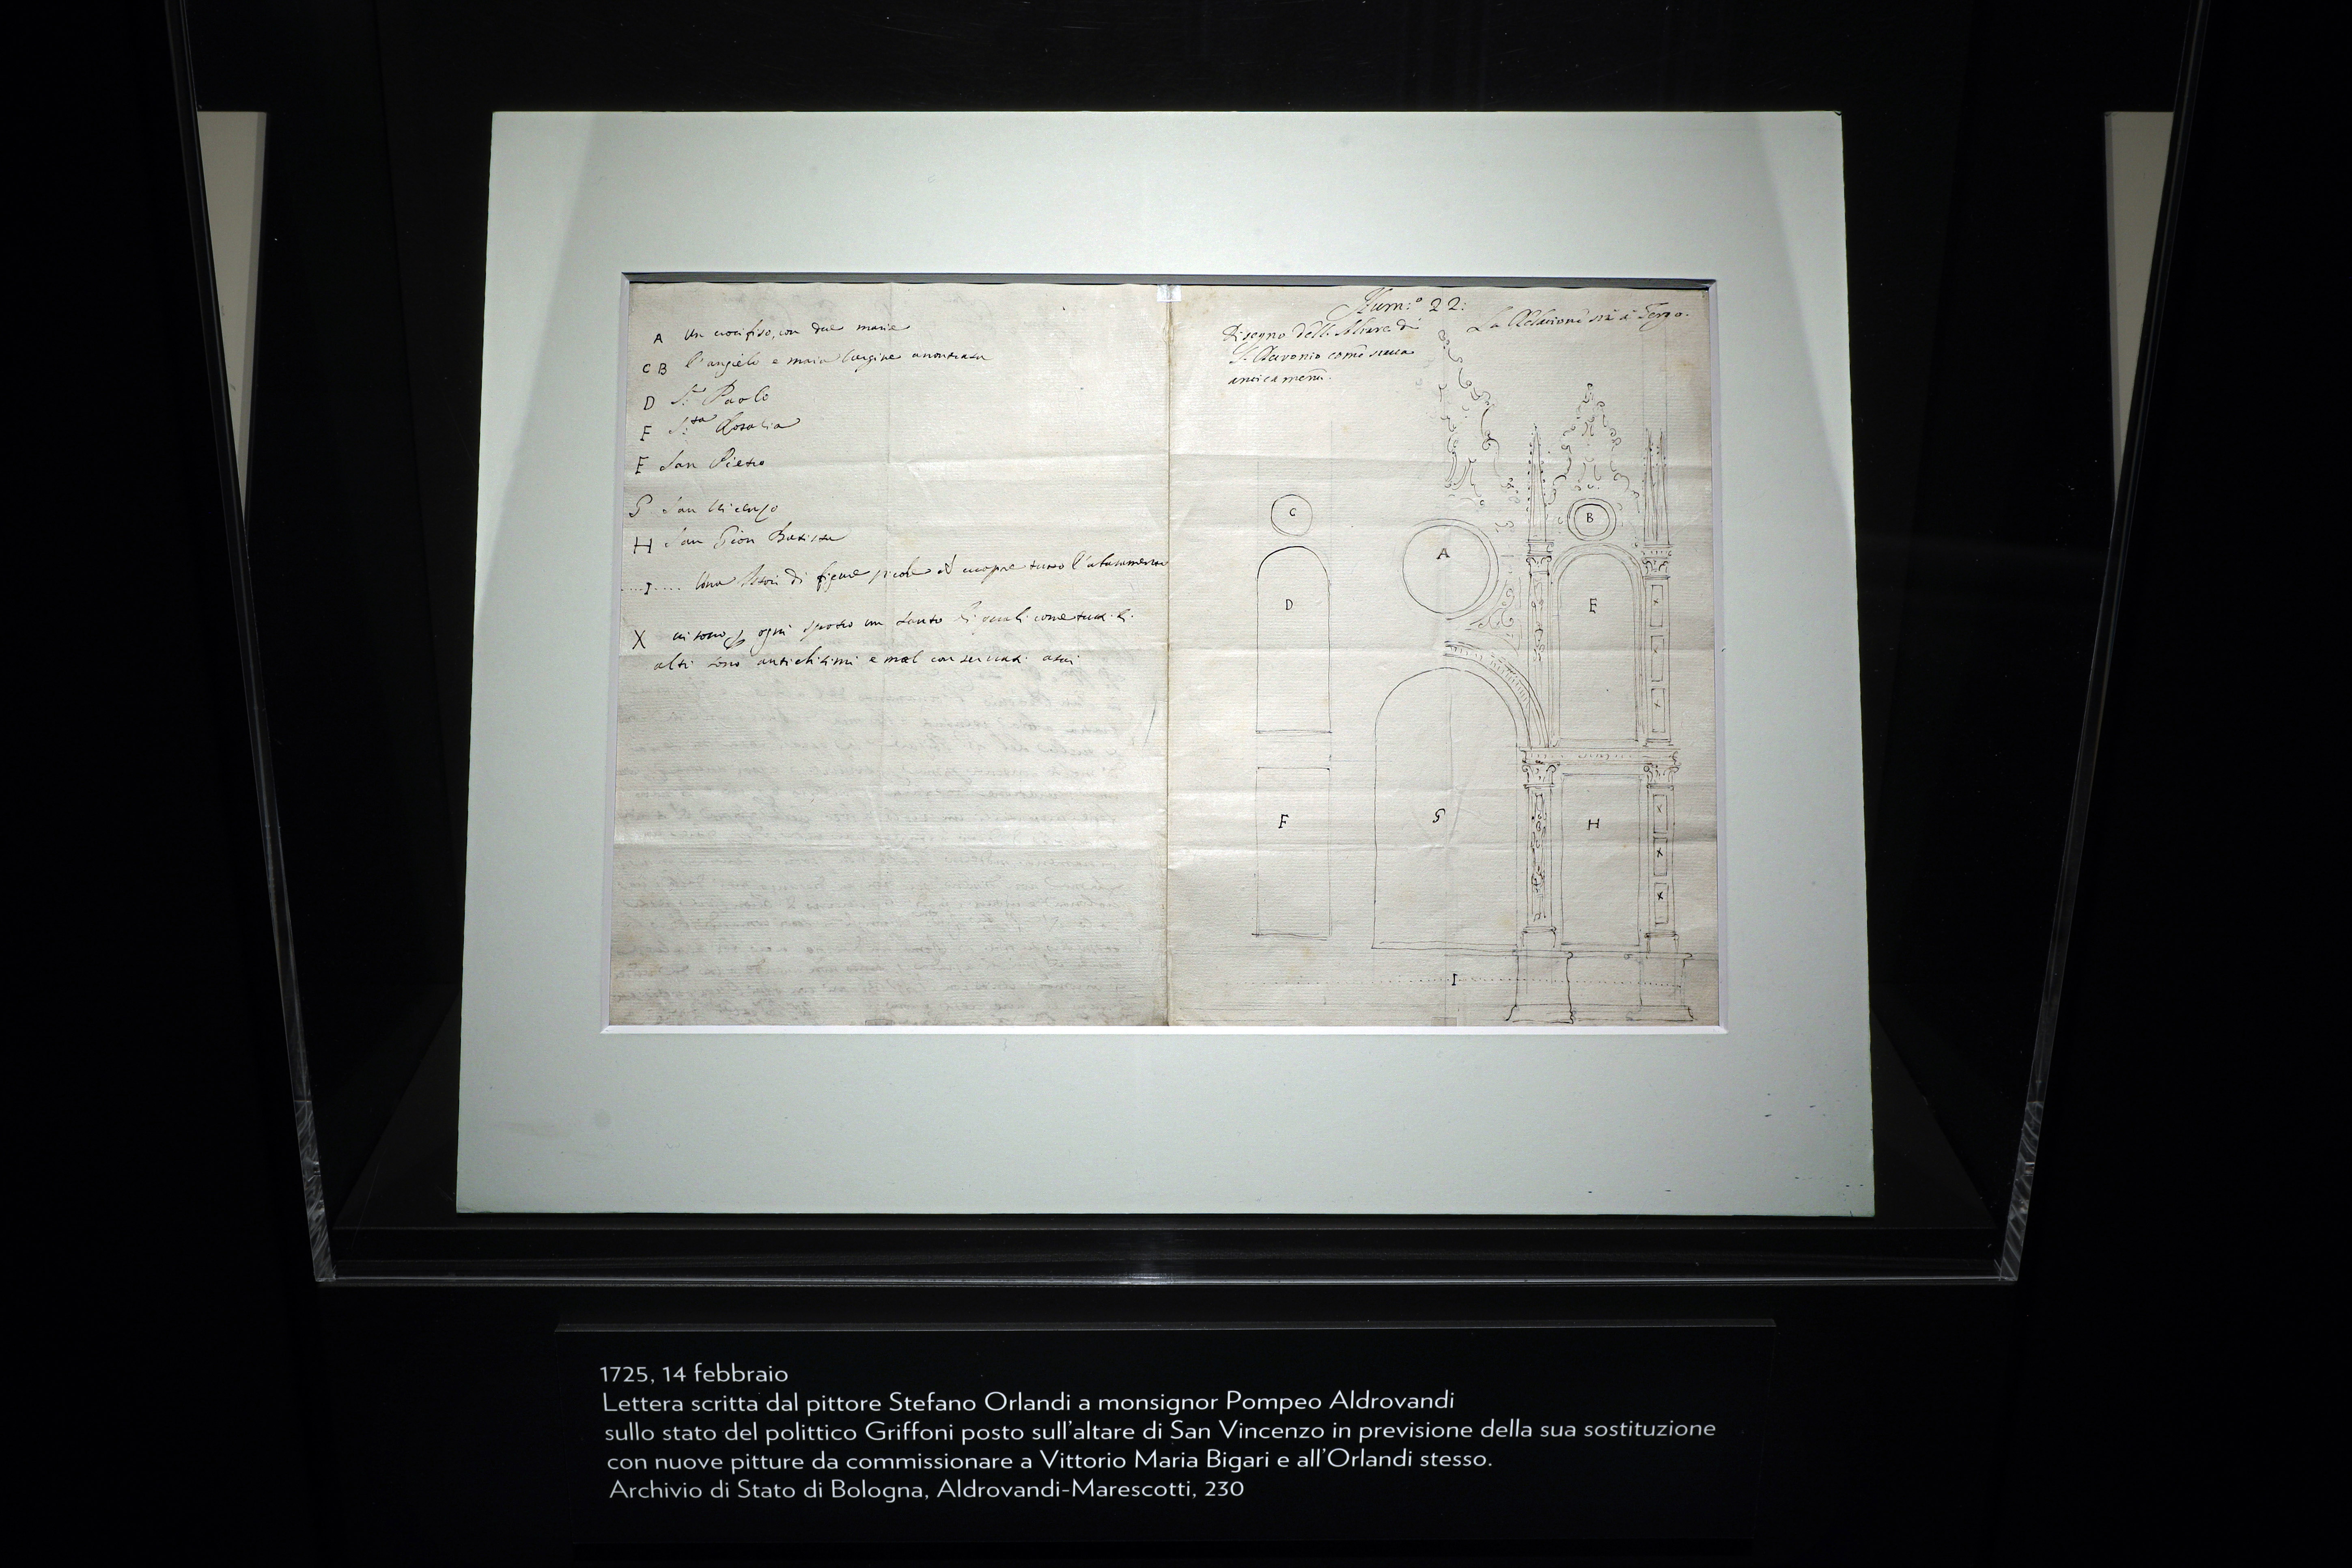 A Un crocifiso, con due marie
C B l'angielo e maria Vergine anontiata
D S.t Paolo
F S.ta Rosalia
E San Pietro
G San Vicenzo
H San Gion Batista
....I.... Una Storia di figure picole che ocopre tutto l'abasamento
X vi sono ogni spatio un Santo li quali come tutti li
altri sono antichisimi e mal conservati asai
Num:o 22:
Disegno dell'Altare di
S. come stava
anticamente.
La Relazione sta à Tergo.
C
B
A
D
E
F
G
H
I
X
X
X
X
X
X
1725, 14 febbraio
Lettera scritta dal pittore Stefano Orlandi a monsignor Pompeo Aldrovandi
sullo stato del polittico Griffoni posto sull'altare di San Vincenzo in previsione della sua sostituzione
con nuove pitture da commissionare a Vittorio Maria Bigari e all'Orlandi stesso.
Archivio di Stato di Bologna, Aldrovandi-Marescotti, 230